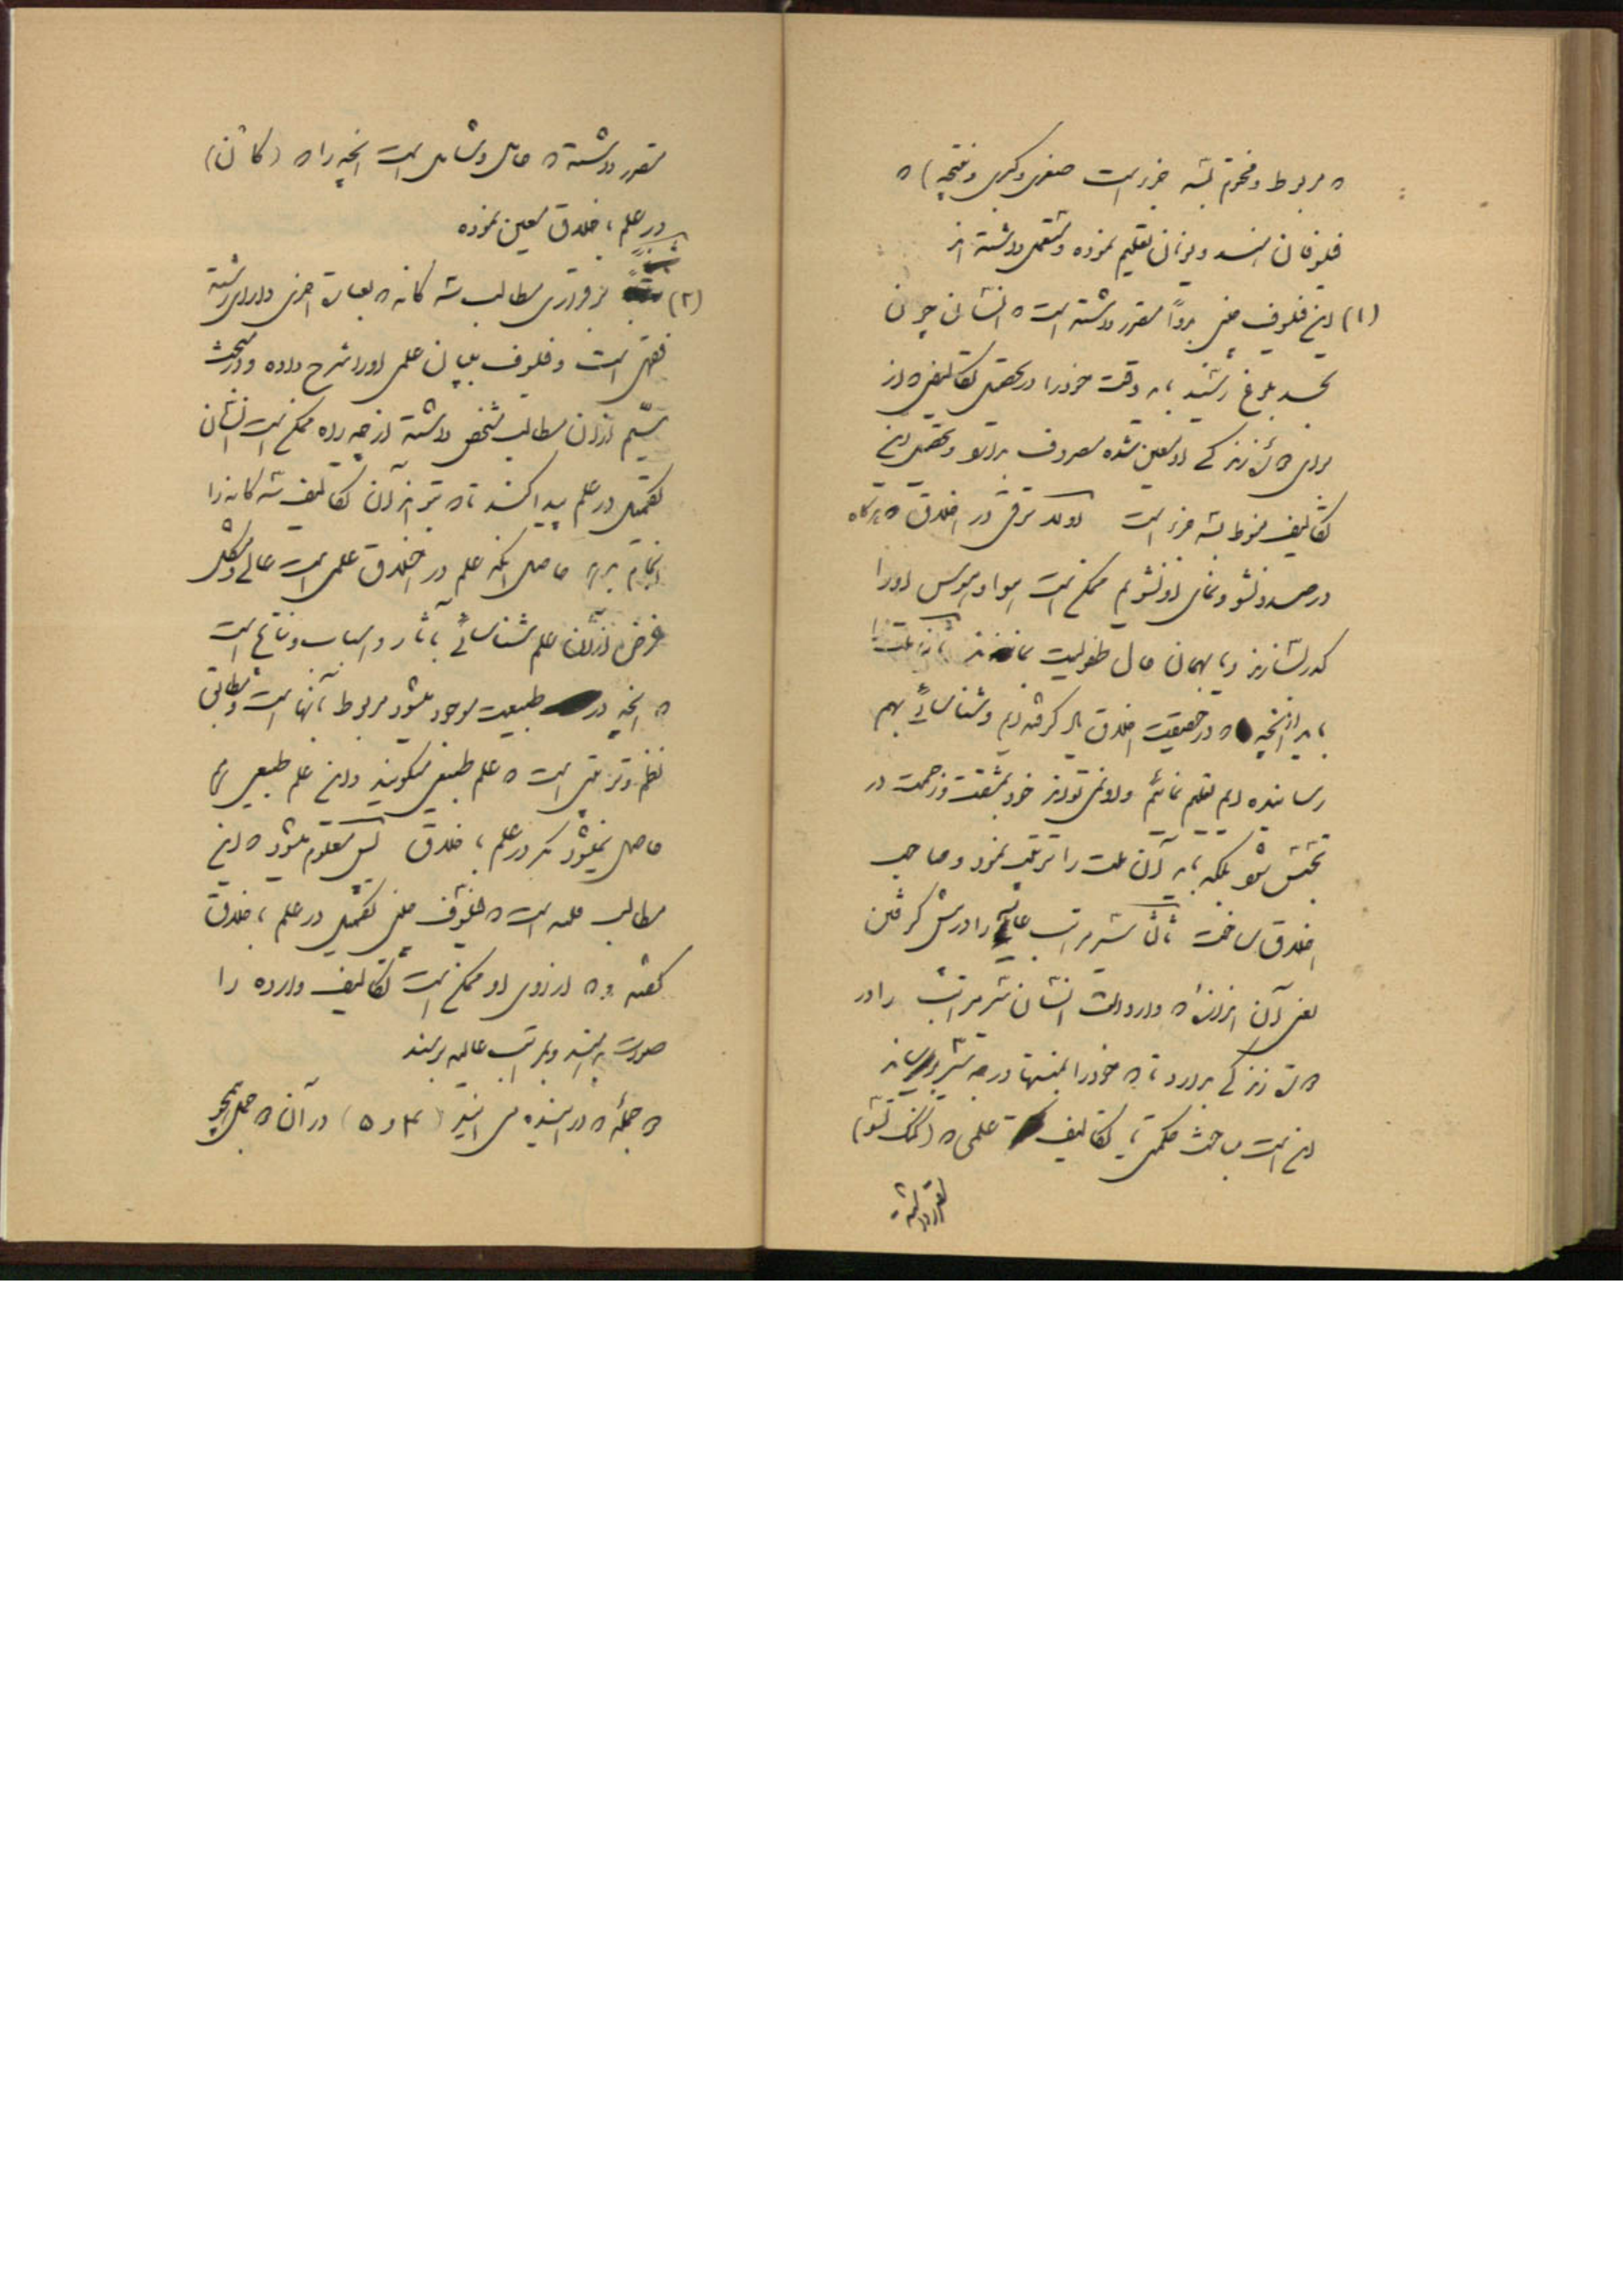 که مربوط و مختوم بسه جزء است صغری و کبری و نتیجه) که
فیلسوفان هند و یونان تعلیم نموده و مستعمل داشته اند
(۱) این فیلسوف چینی بدواً مقرر داشته است که انسانی چون
بحد بلوغ رسید باید وقت خود را در تحصیل تکالیفی که از
برای زندگی او معین شده مصروف بدارد و تحصیل این
تکالیف منوط بسه جزء است اولاً ترقی در اخلاق که هرگاه
درصدد نشو و نمای او نشویم ممکن است هوا و هوس او را
کدر بسازند و بهمان حال طفولیت بماند
باید آنچه که در حقیقت اخلاق یاد گرفته ایم و شناسائی بهم
رسانیده ایم تعلیم نمائیم و او نمی تواند خود بمشقت و زحمت در
تجسس شود بلکه باید آن ملت را تربیت نمود و صاحب
اخلاق ساخت ثالثاً سیر مراتب عالیه را در پیش گرفتن
یعنی آن اندازه که وارد است انسان سیر مراتب را در
زندگی بدارد تا که خود را بمنتها درجه برساند
این است مباحث حکمتی با تکالیف علمی که (کنگ تسو)
مقرر داشته
مقرر داشته که حامل و شامل است آنچه را که (کانت)
در علم اخلاق معین نموده
(۲) مطالب سه گانه که بعبارت اخری دارای رشته
فقهی است و فیلسوف ببیان علمی او را شرح داده و در مبحث
سیم از آن مطالب مشخص داشته از چه راه ممکن است انسان
تکمیل در علم پیدا کند تا که بتواند آن تکالیف سه گانه را
انجام بدهد حاصل آنکه علم در اخلاق علمی است عالی و مشکل
غرض از آن علم شناسائی بآثار و اسباب و نتایج است
که آنچه در طبیعت موجود میشود مربوط بآنها است و مطابق
نظم و ترتیبی است که علم طبیعی میگویند و این علم طبیعی
حاصل نمیشود مگر در علم اخلاق پس معلوم میشود که این
مطالب علمیه است که فیلسوف چینی تکمیل در علم اخلاق
گفته و که از روی او ممکن است تکالیف وارده را
صورت بدهند و بمراتب عالیه برسند
که جمله که در آینده می آید (۴ و ۵) در آن